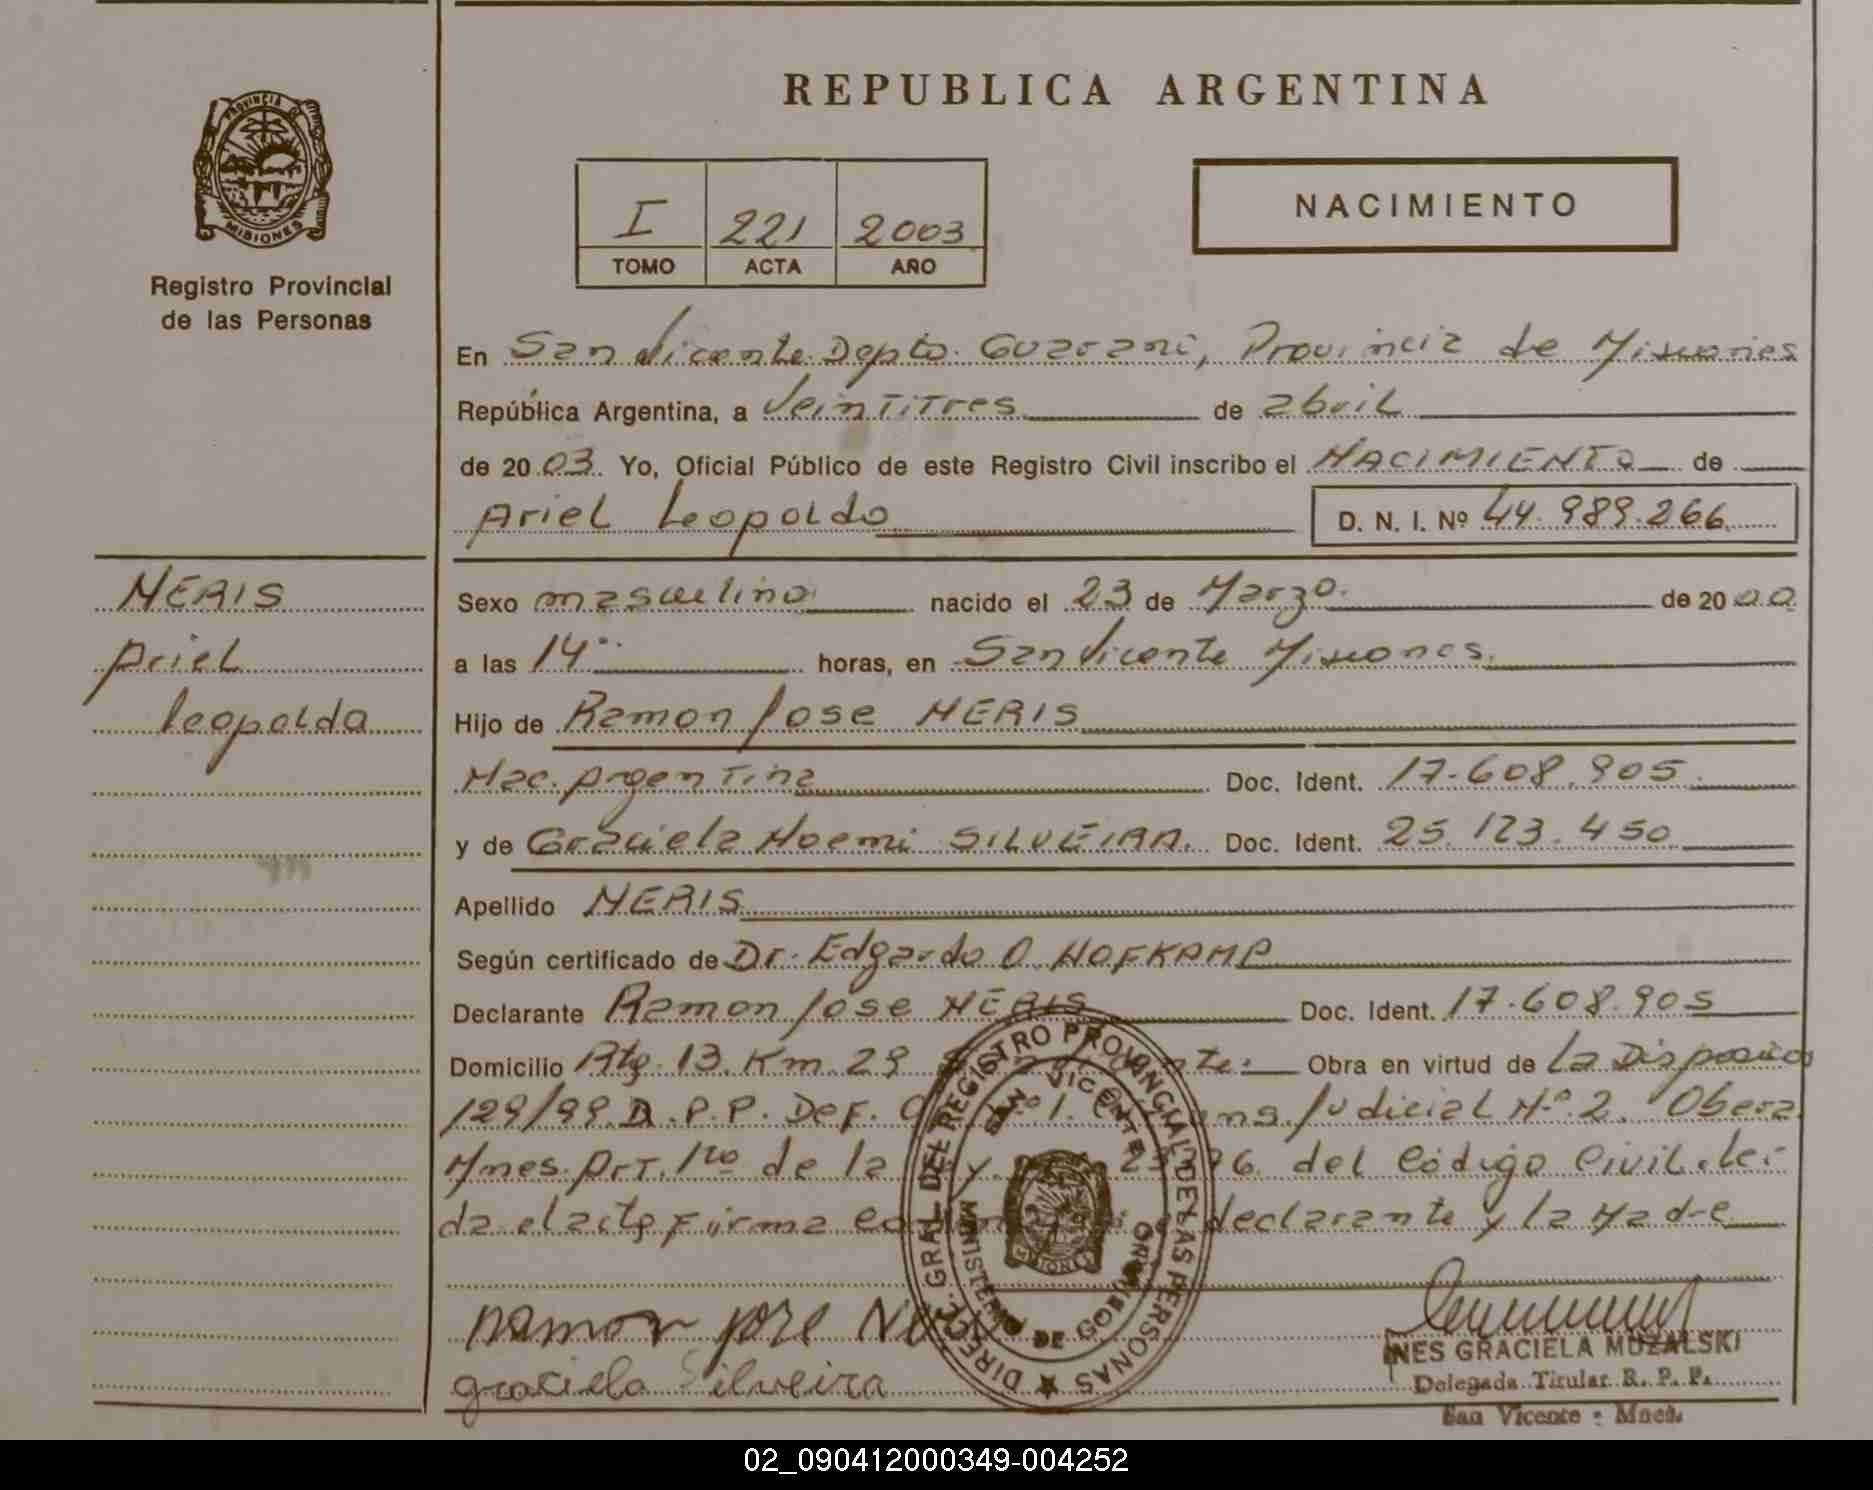 REPUBLICA ARGENTINA
PROVINCIA DE
MISIONES
Registro Provincial
de las Personas
I 221 2003
TOMO ACTA AÑO
NACIMIENTO
En San Vicente Depto. Guarani, Provincia de Misiones
República Argentina, a Veintitres de abril
de 2003. Yo, Oficial Público de este Registro Civil inscribo el NACIMIENTO de
Ariel Leopoldo D. N. I. Nº 44.989.266
NERIS
Ariel
Leopoldo
Sexo masculino nacido el 23 de Marzo de 2000
a las 14 horas, en San Vicente Misiones
Hijo de Ramon Jose NERIS
Nac. Argentina Doc. Ident. 17.608.905
y de Graciela Noemi SILVEIRA. Doc. Ident. 25.123.450
Apellido NERIS
Según certificado de Dr. Edgardo O. HOFKAMP
Declarante Ramon Jose NERIS Doc. Ident. 17.608.905
Domicilio Rta. 13. Km. 29 Obra en virtud de La Disposicion
129/99 D.P.P. Def. Judicial Nº 2. Obera
Mnes. Art. 1ro de la del Código Civil. Lei-
da el acta firma declarante y la Madre
Ramon Jose
graciela Silveira
DIREC. GRAL DEL REGISTRO PROVINCIAL DE LAS PERSONAS
SAN VICENTE
MINISTERIO DE GOBIERNO
INES GRACIELA MUZALSKI
Delegada Titular R. P. P.
San Vicente - Mnes.
02_090412000349-004252